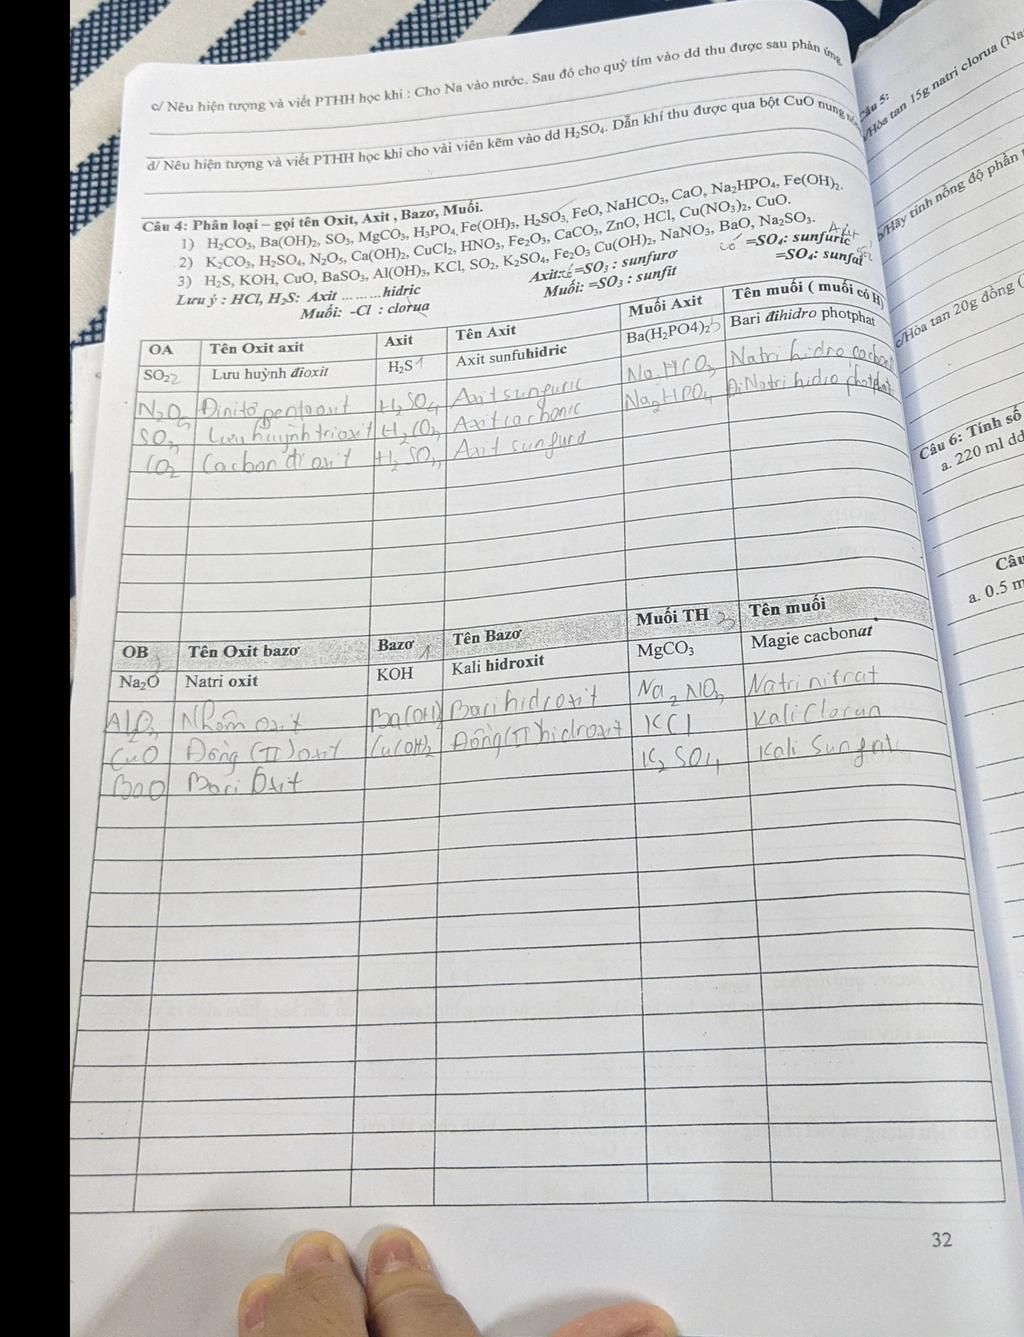 c/ Nêu hiện tượng và viết PTHH học khi : Cho Na vào nước. Sau đó cho quỳ tím vào dd thu được sau phản ứng.
d/ Nêu hiện tượng và viết PTHH học khi cho vài viên kẽm vào dd H₂SO₄. Dẫn khí thu được qua bột CuO nung
Câu 4: Phân loại – gọi tên Oxit, Axit , Bazơ, Muối.
1) H₂CO₃, Ba(OH)₂, SO₃, MgCO₃, H₃PO₄, Fe(OH)₃, H₂SO₃, FeO, NaHCO₃, CaO, Na₂HPO₄, Fe(OH)₂.
2) K₂CO₃, H₂SO₄, N₂O₅, Ca(OH)₂, CuCl₂, HNO₃, Fe₂O₃, CaCO₃, ZnO, HCl, Cu(NO₃)₂, CuO.
3) H₂S, KOH, CuO, BaSO₃, Al(OH)₃, KCl, SO₂, K₂SO₄, Fe₂O₃ Cu(OH)₂, NaNO₃, BaO, Na₂SO₃.
Lưu ý : HCl, H₂S: Axit .........hidric Axit: =SO₃ : sunfurơ =SO₄: sunfuric Axit
Muối: -Cl : clorua Muối: =SO₃ : sunfit =SO₄: sunfat
OA Tên Oxit axit Axit Tên Axit Muối Axit Tên muối ( muối có H)
SO₂ Lưu huỳnh đioxit H₂S Axit sunfuhidric Ba(H₂PO4)₂ Bari đihidro photphat
N₂O₅ Đinitơ pentaoxit H₂SO₄ Axit sunfuric NaHCO₃ Natri hidro cacbonat
SO₃ Lưu huỳnh trioxit H₂CO₃ Axit cacbonic Na₂HPO₄ Đi Natri hidro photphat
CO₂ Cacbon đi oxit H₂SO₃ Axit sunfurơ
OB Tên Oxit bazơ Bazơ Tên Bazơ Muối TH Tên muối
Na₂O Natri oxit KOH Kali hidroxit MgCO₃ Magie cacbonat
Nhôm oxit Ba(OH) Bari hidroxit Na₂NO₃ Natri nitrat
CuO Đồng (II) oxit Cu(OH)₂ Đồng(II) hidroxit KCl Kali Clorua
BaO Bari Oxit K₂SO₄ Kali Sunfat
32
Câu 5:
/Hòa tan 15g natri clorua (Na
b/Hãy tính nồng độ phần
c/Hòa tan 20g đồng (
Câu 6: Tính số
a. 220 ml dd
Câu
a. 0.5 m